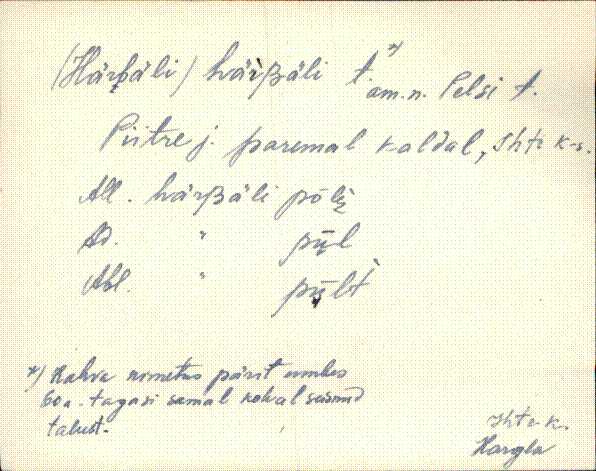 (Härbäli) härBäli t. *)
am. n. Pelsi t.
Piitre j. paremal kaldal, Iht. k-s.
All. härBäli pōli
Ad. " pōl
Abl. " pōlt
*) Rahva nimetus pärit umbes
60 a. tagasi samal kohal seisnud
talust.
Iht. k.
Hargla